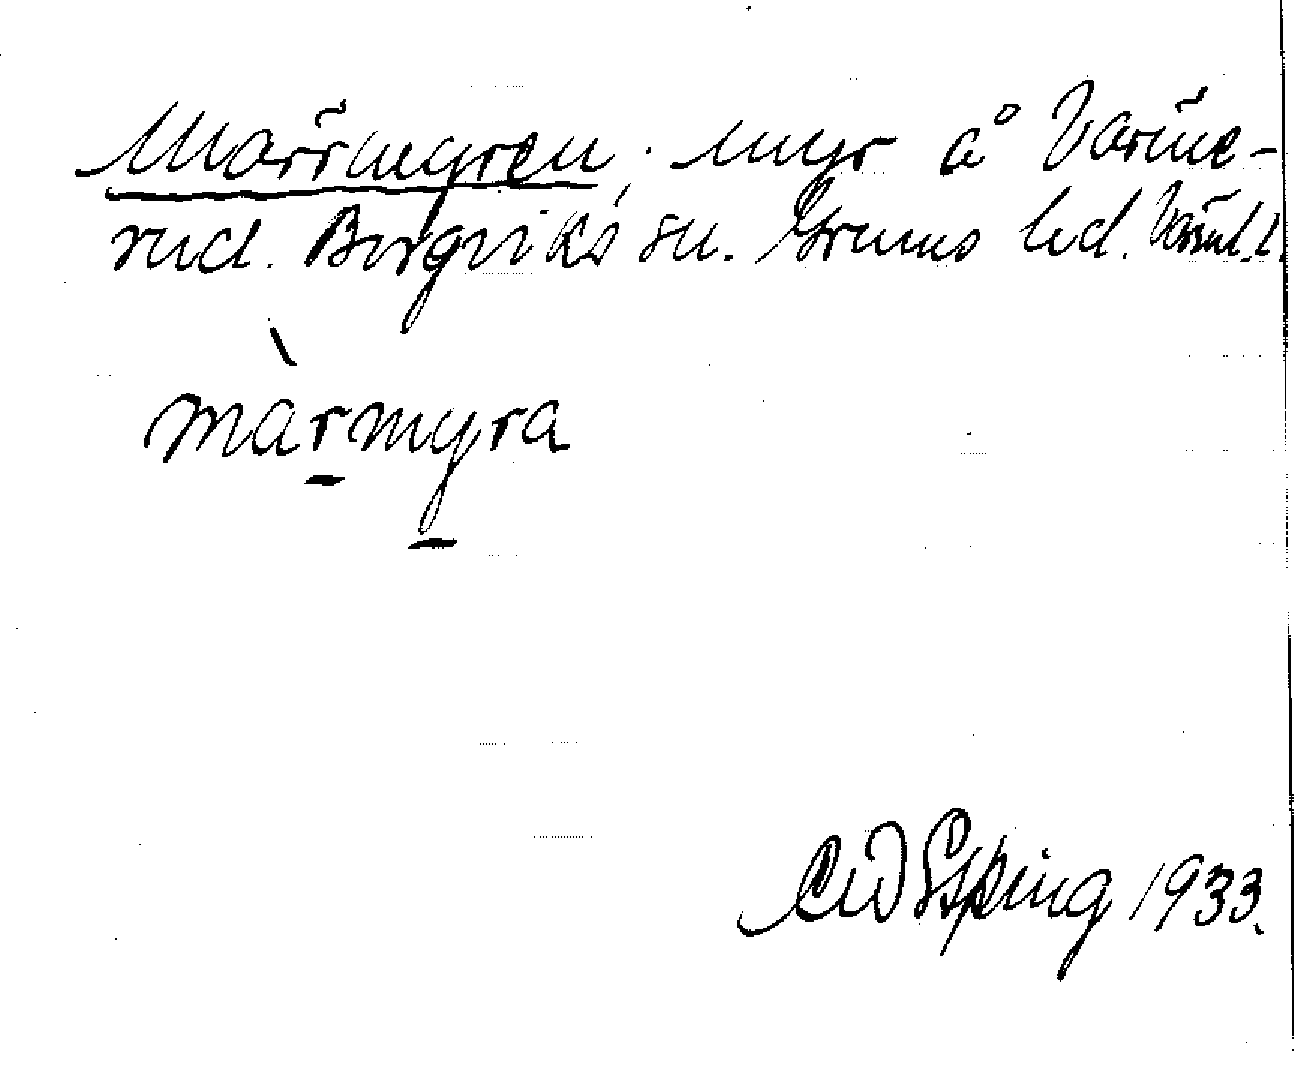 Marrmyren; myr å Värme-
rud. Borgviks sn. Grums hd. Värml. l.
màrmyra
C W Esping 1933.